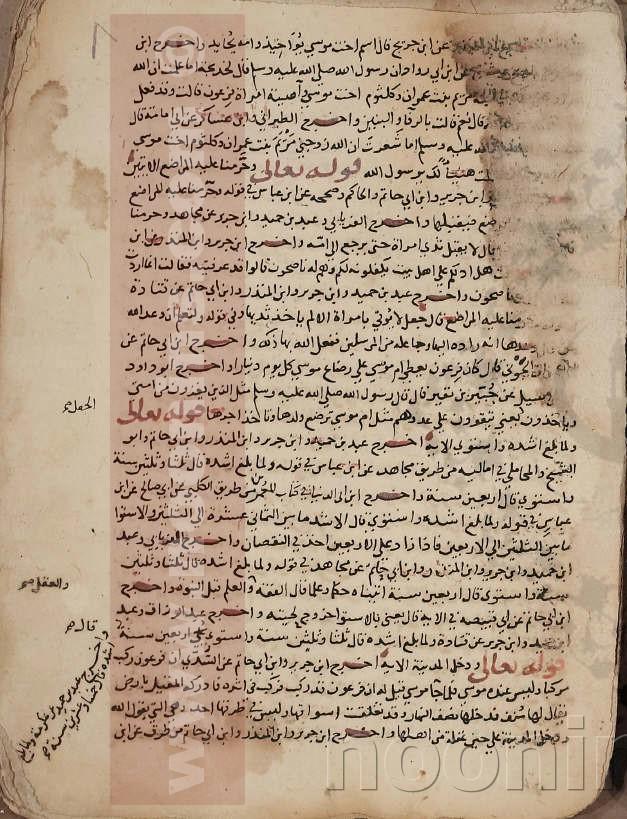 عن ابن جريج قال اسم اخت موسى يواخيذ وامه يحانيد واخرج ابن
عن ابن ابي رواد ان رسول الله صلى الله عليه وسلم قال لخديجة اما علمت ان الله
مريم بنت عمران وكلثوم اخت موسى وآسية امراة فرعون قالت وقد فعل
قال نعم قالت بالرفا والبنين واخرج الطبراني وابن عساكر عن ابي امامة قال
الله عليه وسلم اما شعرت ان الله زوجني مريم بنت عمران وكلثوم اخت موسى
هنيأ لك يرسول الله قوله تعالى وحرمنا عليه المراضع الايتين
وابن جرير وابن ابي حاتم والحاكم وصححه عن ابن عباس في قوله وحرمنا عليه المراضع
فيقبلها واخرج الفريابي وعبد بن حميد وابن جرير عن مجاهد وحرمنا
قال لا يقبل ثدي امراة حتى يرجع الى امه واخرج ابن جرير وابن المنذر عن ابن
هل ادلكم على اهل بيت يكفلونه لكم وهم له ناصحون قالوا قد عرفتيه فقالت انما اردت
ناصحون واخرج عبد بن حميد وابن جرير وابن المنذر وابن ابي حاتم عن قتادة
وحرمنا عليه المراضع قال جعل لا يوتي بامراة الا لم ياخذ ثديها وفي قوله ولتعلم ان وعد الله
انه راده اليها وجاعله من المرسلين ففعل الله بها ذلك واخرج ابن ابي حاتم عن
الجوني قال كان فرعون يعطي ام موسى على رضاع موسى كل يوم دينارا واخرج ابو داود
عن جبير بن نفير قال قال رسول الله صلى الله عليه وسلم مثل الذين يغزون من امتي
وياخذون يعني يتقوون على عدوهم مثل ام موسى ترضع ولدها وتاخذ اجرها قوله تعالى
ولما بلغ اشده واستوى الاية اخرج عبد بن حميد وابن جرير وابن المنذر وابن ابي حاتم وابو
الشيخ والمحاملي في اماليه من طريق مجاهد عن ابن عباس في قوله ولما بلغ اشده قال ثلثا وثلثين سنة
واستوى قال اربعين سنة واخرج ابن ابي الدنيا في كتاب المعمرين من طريق الكلبي عن ابي صالح عن ابن
عباس في قوله ولما بلغ اشده واستوى قال الاشد ما بين الثماني عشرة الى الثلثين والاستوا
ما بين الثلثين الى الاربعين فاذا زاد على الاربعين اخذ في النقصان واخرج الفريابي وعبد
ابن حميد وابن جرير وابن المنذر وابن ابي حاتم عن مجاهد في قوله ولما بلغ اشده قال ثلثا وثلثين
سنة واستوى قال اربعين سنة اتيناه حكما وعلما قال الفقه والعلم قبل النبوة واخرج
ابن ابي حاتم عن ابي قبيصة في الاية قال يعني بالاستوا خروج لحيته واخرج عبد الرزاق وعبد
ابن حميد وابن جرير عن قتادة ولما بلغ اشده قال ثلثا وثلثين سنة واستوى بلغ اربعين سنة
قوله تعالى ودخل المدينة الاية اخرج ابن جرير وابن ابي حاتم عن السدي ان فرعون ركب
مركبا وليس عنده موسى فلما جا موسى قيل له ان فرعون قد ركب فركب في اثره فادركه المقيل بارض
يقال لها منف فدخلها نصف النهار وقد تغلقت اسواقها وليس في طرقها احد وهي التي يقول الله
ودخل المدينة على حين غفلة من اهلها واخرج ابن جرير وابن المنذر وابن ابي حاتم من طريق عن ابن
الجعل صح
والعقل صح
قال صح
واخرج عبد بن حميد